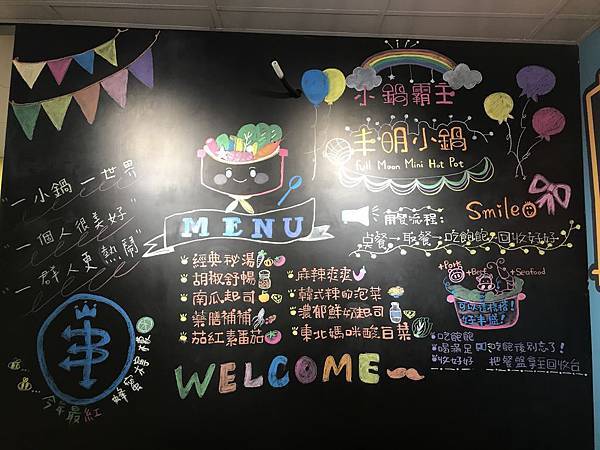 小鍋霸王
丰明小鍋
Full Moon Mini Hot Pot
"一小鍋一世界
"一個人很美好"
"一群人更熱鬧"
MENU
用餐流程:
Smile
點餐→取餐→吃飽飽→回收好好
經典秘湯
胡椒舒暢
南瓜起司
藥膳補補
茄紅素番茄
麻辣來來
韓式辣的泡菜
濃郁鮮奶起司
東北媽咪酸白菜
+Pork
+Beef
+Seafood
可以這樣搭!
好丰盛!
吃飽飽
喝滿足
收好好
吃飽後別忘了!
把餐盤拿至回收台
今年最紅
WELCOME